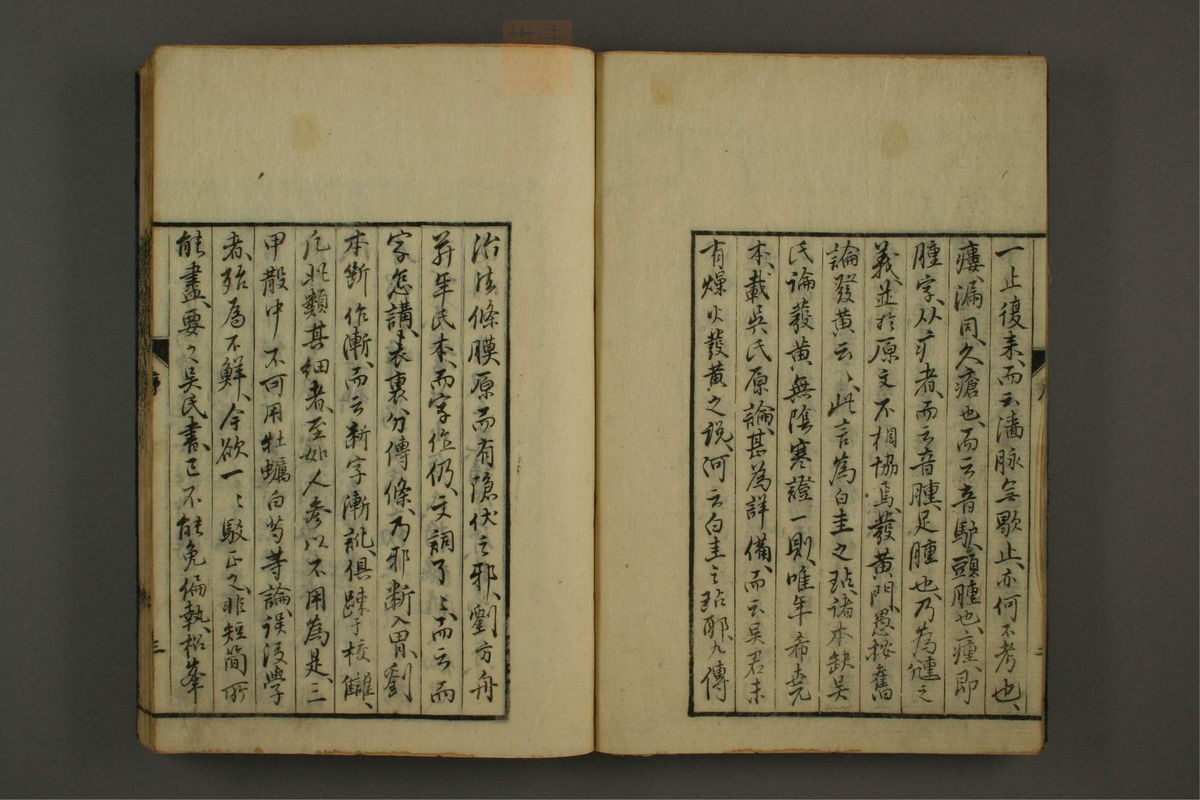 一止復来、而云瀋脉無歇止、亦何不考也、
瘻漏同、久瘡也、而云音馿、頭腫也、瘇即
腫字、从疒者、而云音腫、足腫也、乃為僆之
義、並於原文不相協焉、發黄門、愚按舊
論發黄云々、此言為白圭之玷、諸本缺吳
氏論發黄無陰寒證一則、唯年希堯
本載吳氏原論、甚為詳備、而云吳君未
有燥火發黄之説、何云白圭之玷耶、九傳
治法條膜原而有隱伏之邪、劉方舟
并年氏本、而字作仍、文詞了々、而云而
字怎講、表裏分傳條、乃邪漸入胃、劉
本斷作漸、而云斬字漸訛、俱踈于校讎、
凡此類其細者、至如人參以不用為是、三
甲散中不可用牡蠣白芍等論、误後學
者、殆為不鮮、今欲一々駁正之、非短簡所
能盡、要之吳氏書、已不能免偏執、松峯
序
三